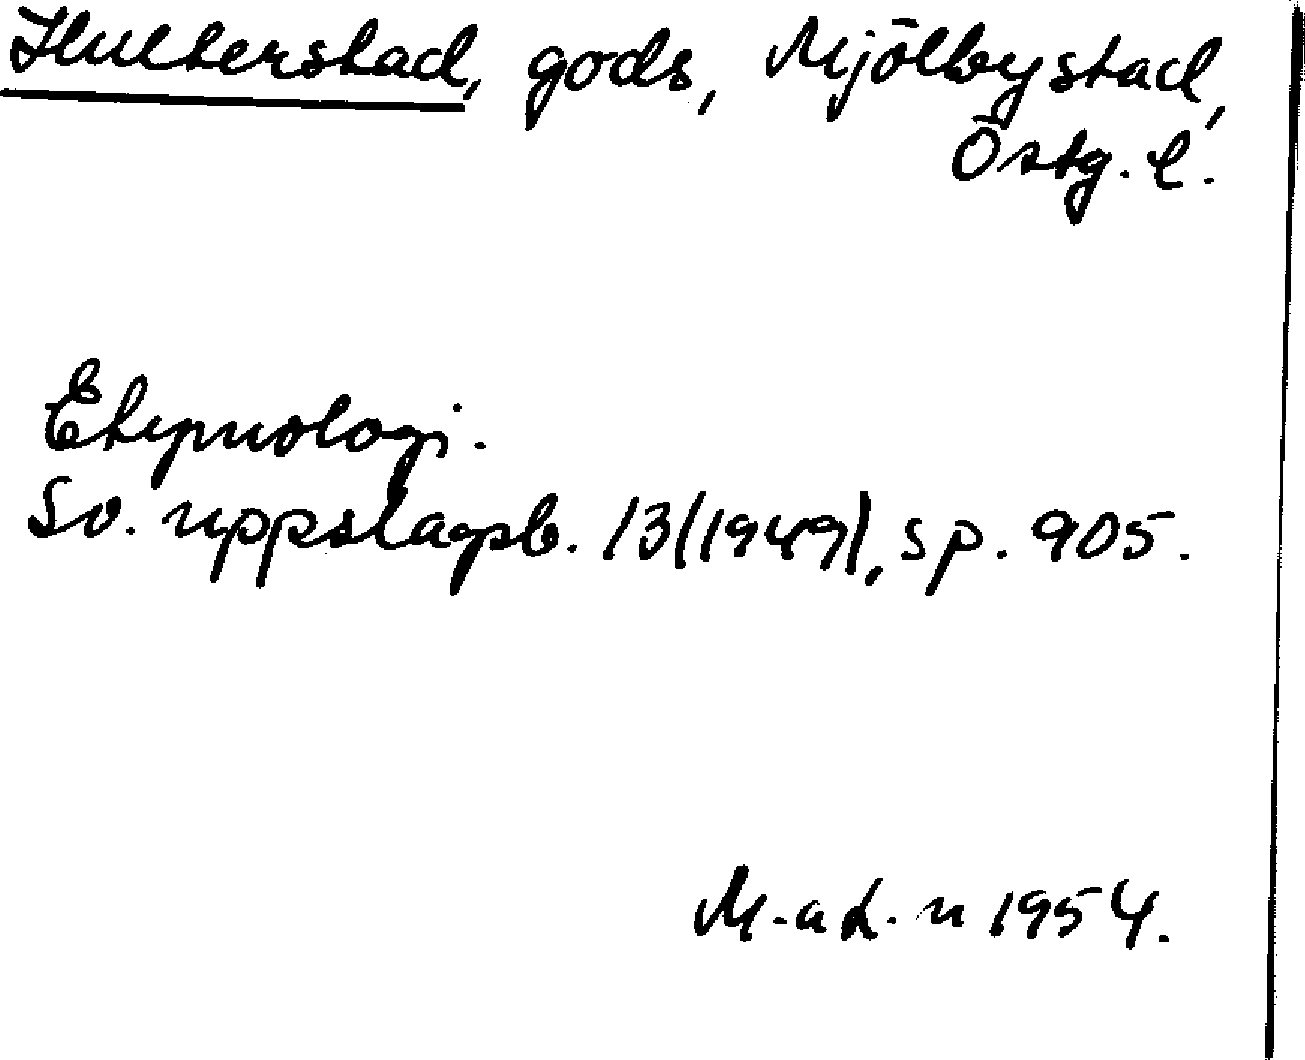 Hulterstad, gods, Mjölby stad,
Östg. l.
Etymologi.
Sv. uppslagsb. 13(1949), sp. 905.
1954.